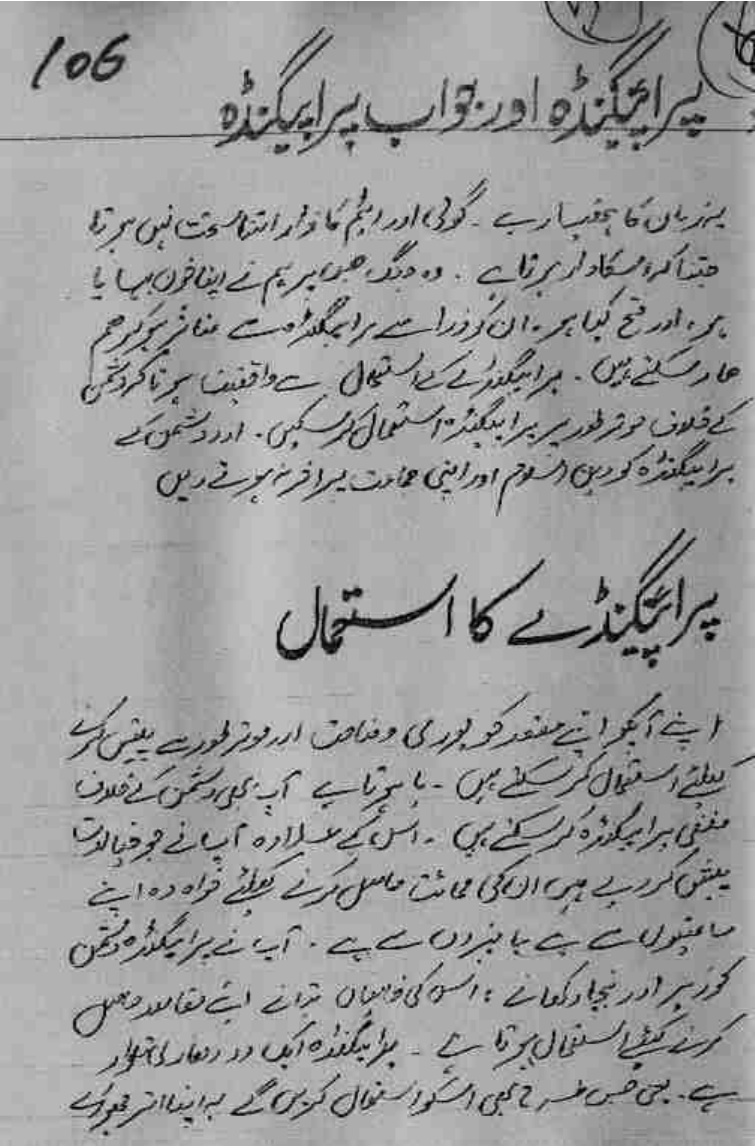 106
پراپیگنڈہ اور جواب پراپیگنڈہ
یہ زبان کا ہتھیار ہے ۔ گولی اور ایٹم کا وار اتنا سخت نہیں ہوتا
جتنا کہ اسکا وار ہوتا ہے ۔ وہ جنگ جس پر ہم نے اپنا خون بہایا
ہو ، اور فتح کیا ہو ۔ ان کو ذرا سے پراپیگنڈا سے متاثر ہو کر ہم
ہار سکتے ہیں ۔ پراپیگنڈے کے استعمال سے واقفیت ہو تاکہ دشمن
کے خلاف موثر طور پر پراپیگنڈہ استعمال کر سکیں ۔ اور دشمن کے
پراپیگنڈہ کو دین اسلام اور اپنی جماعت پر اثر نہ ہونے دیں
پراپیگنڈے کا استعمال
اپنے آپکو اپنے مقصد کو پوری وضاحت اور موثر طور سے پیش کرنے
کیلئے استعمال کر سکتے ہیں ۔ یا ہوتا ہے آپ بھی دشمن کے خلاف
منفی پراپیگنڈہ کر سکتے ہیں ۔ اس کے علاوہ آپ نے جو خیالات
پیش کر رہے ہیں ان کی حمائت حاصل کرنے کیلئے خواہ وہ اپنے
ساتھیوں سے ہے یا غیروں سے ہے ۔ آپ نے پراپیگنڈہ دشمن
کو زیر اور نیچا دکھانے ، اس کی خامیاں بتانے اپنے مقاصد حاصل
کرنے کیلئے استعمال ہوتا ہے ۔ پراپیگنڈہ ایک دو دھاری تلوار
ہے ۔ یعنی جس طرح بھی اسکو استعمال کریں گے یہ اپنا اثر